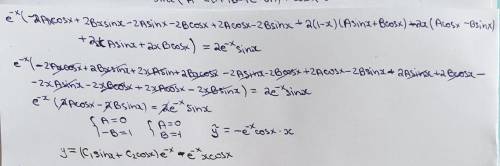 e^{-x}(-2Axcosx + 2Bxsinx - 2Asinx - 2Bcosx + 2Acosx - 2Bsinx + 2(1-x)(Asinx + Bcosx) + 2x(Acosx - Bsinx)
+ 2xAsinx + 2xBcosx) = 2e^{-x}sinx
e^{-x}(-2Axcosx + 2Bxsinx + 2xAsinx + 2Bxcosx - 2Asinx - 2Bcosx + 2Acosx - 2Bsinx + 2Asinx + 2Bcosx -
- 2xAsinx - 2xBcosx + 2xAcosx - 2xBsinx) = 2e^{-x}sinx
e^{-x}(2Acosx - 2Bsinx) = 2e^{-x}sinx
{A=0 {A=0 ỹ = -e^{-x}cosx·x
-B=1 B=1
y = (C₁sinx + C₂cosx)e^{-x} - e^{-x}xcosx